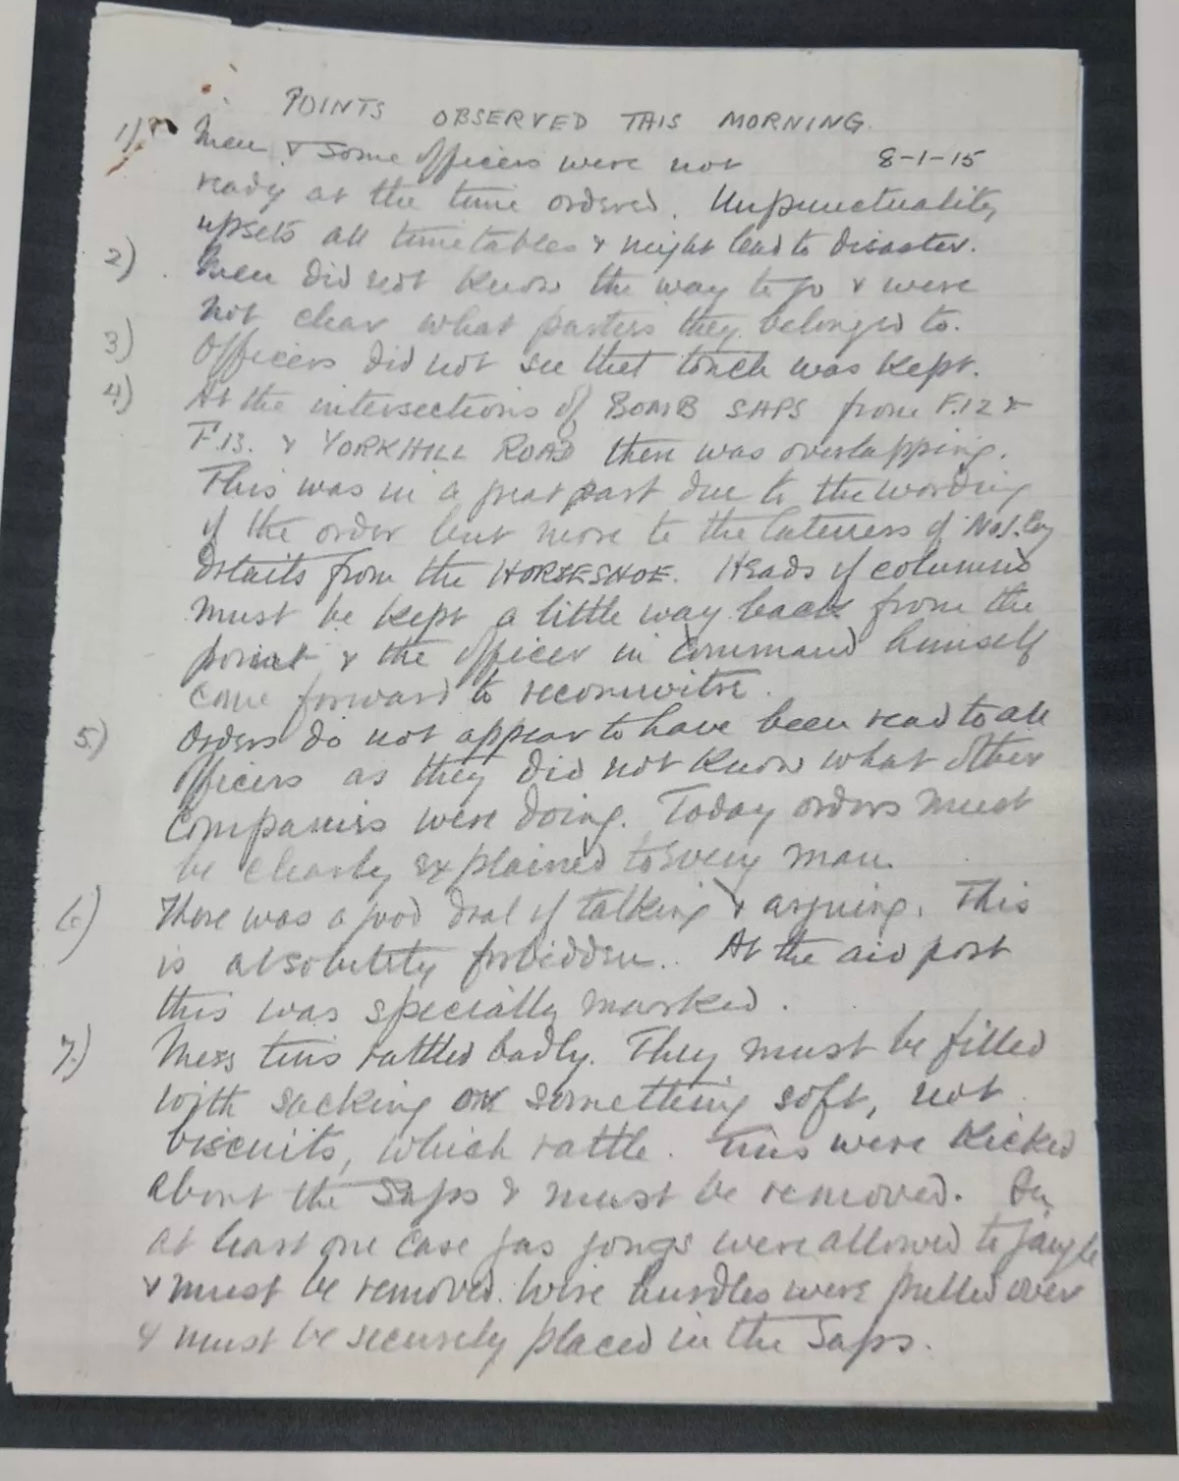 POINTS OBSERVED THIS MORNING.
8-1-15
1) Men & some officers were not
ready at the time ordered. Unpunctuality
upsets all timetables & might lead to disaster.
2) Men did not know the way to go & were
not clear what parties they belonged to.
3) Officers did not see that touch was kept.
4) At the intersections of BOMB SAPS from F.12 &
F.13. & YORKHILL ROAD there was overlapping.
This was in a great part due to the wording
of the order but more to the lateness of No1. Coy
details from the HORSESHOE. Heads of columns
must be kept a little way back from the
point & the officer in command himself
come forward to reconnoitre.
5) Orders do not appear to have been read to all
officers as they did not know what other
Companies were doing. Today orders must
be clearly explained to every man.
6) There was a good deal of talking & arguing. This
is absolutely forbidden. At the aid post
this was specially marked.
7) Mess tins rattled badly. They must be filled
with sacking or something soft, not
biscuits, which rattle. Tins were kicked
about the Saps & must be removed. In
at least one case gas gongs were allowed to jangle
& must be removed. Wire hurdles were pulled over
& must be securely placed in the Saps.